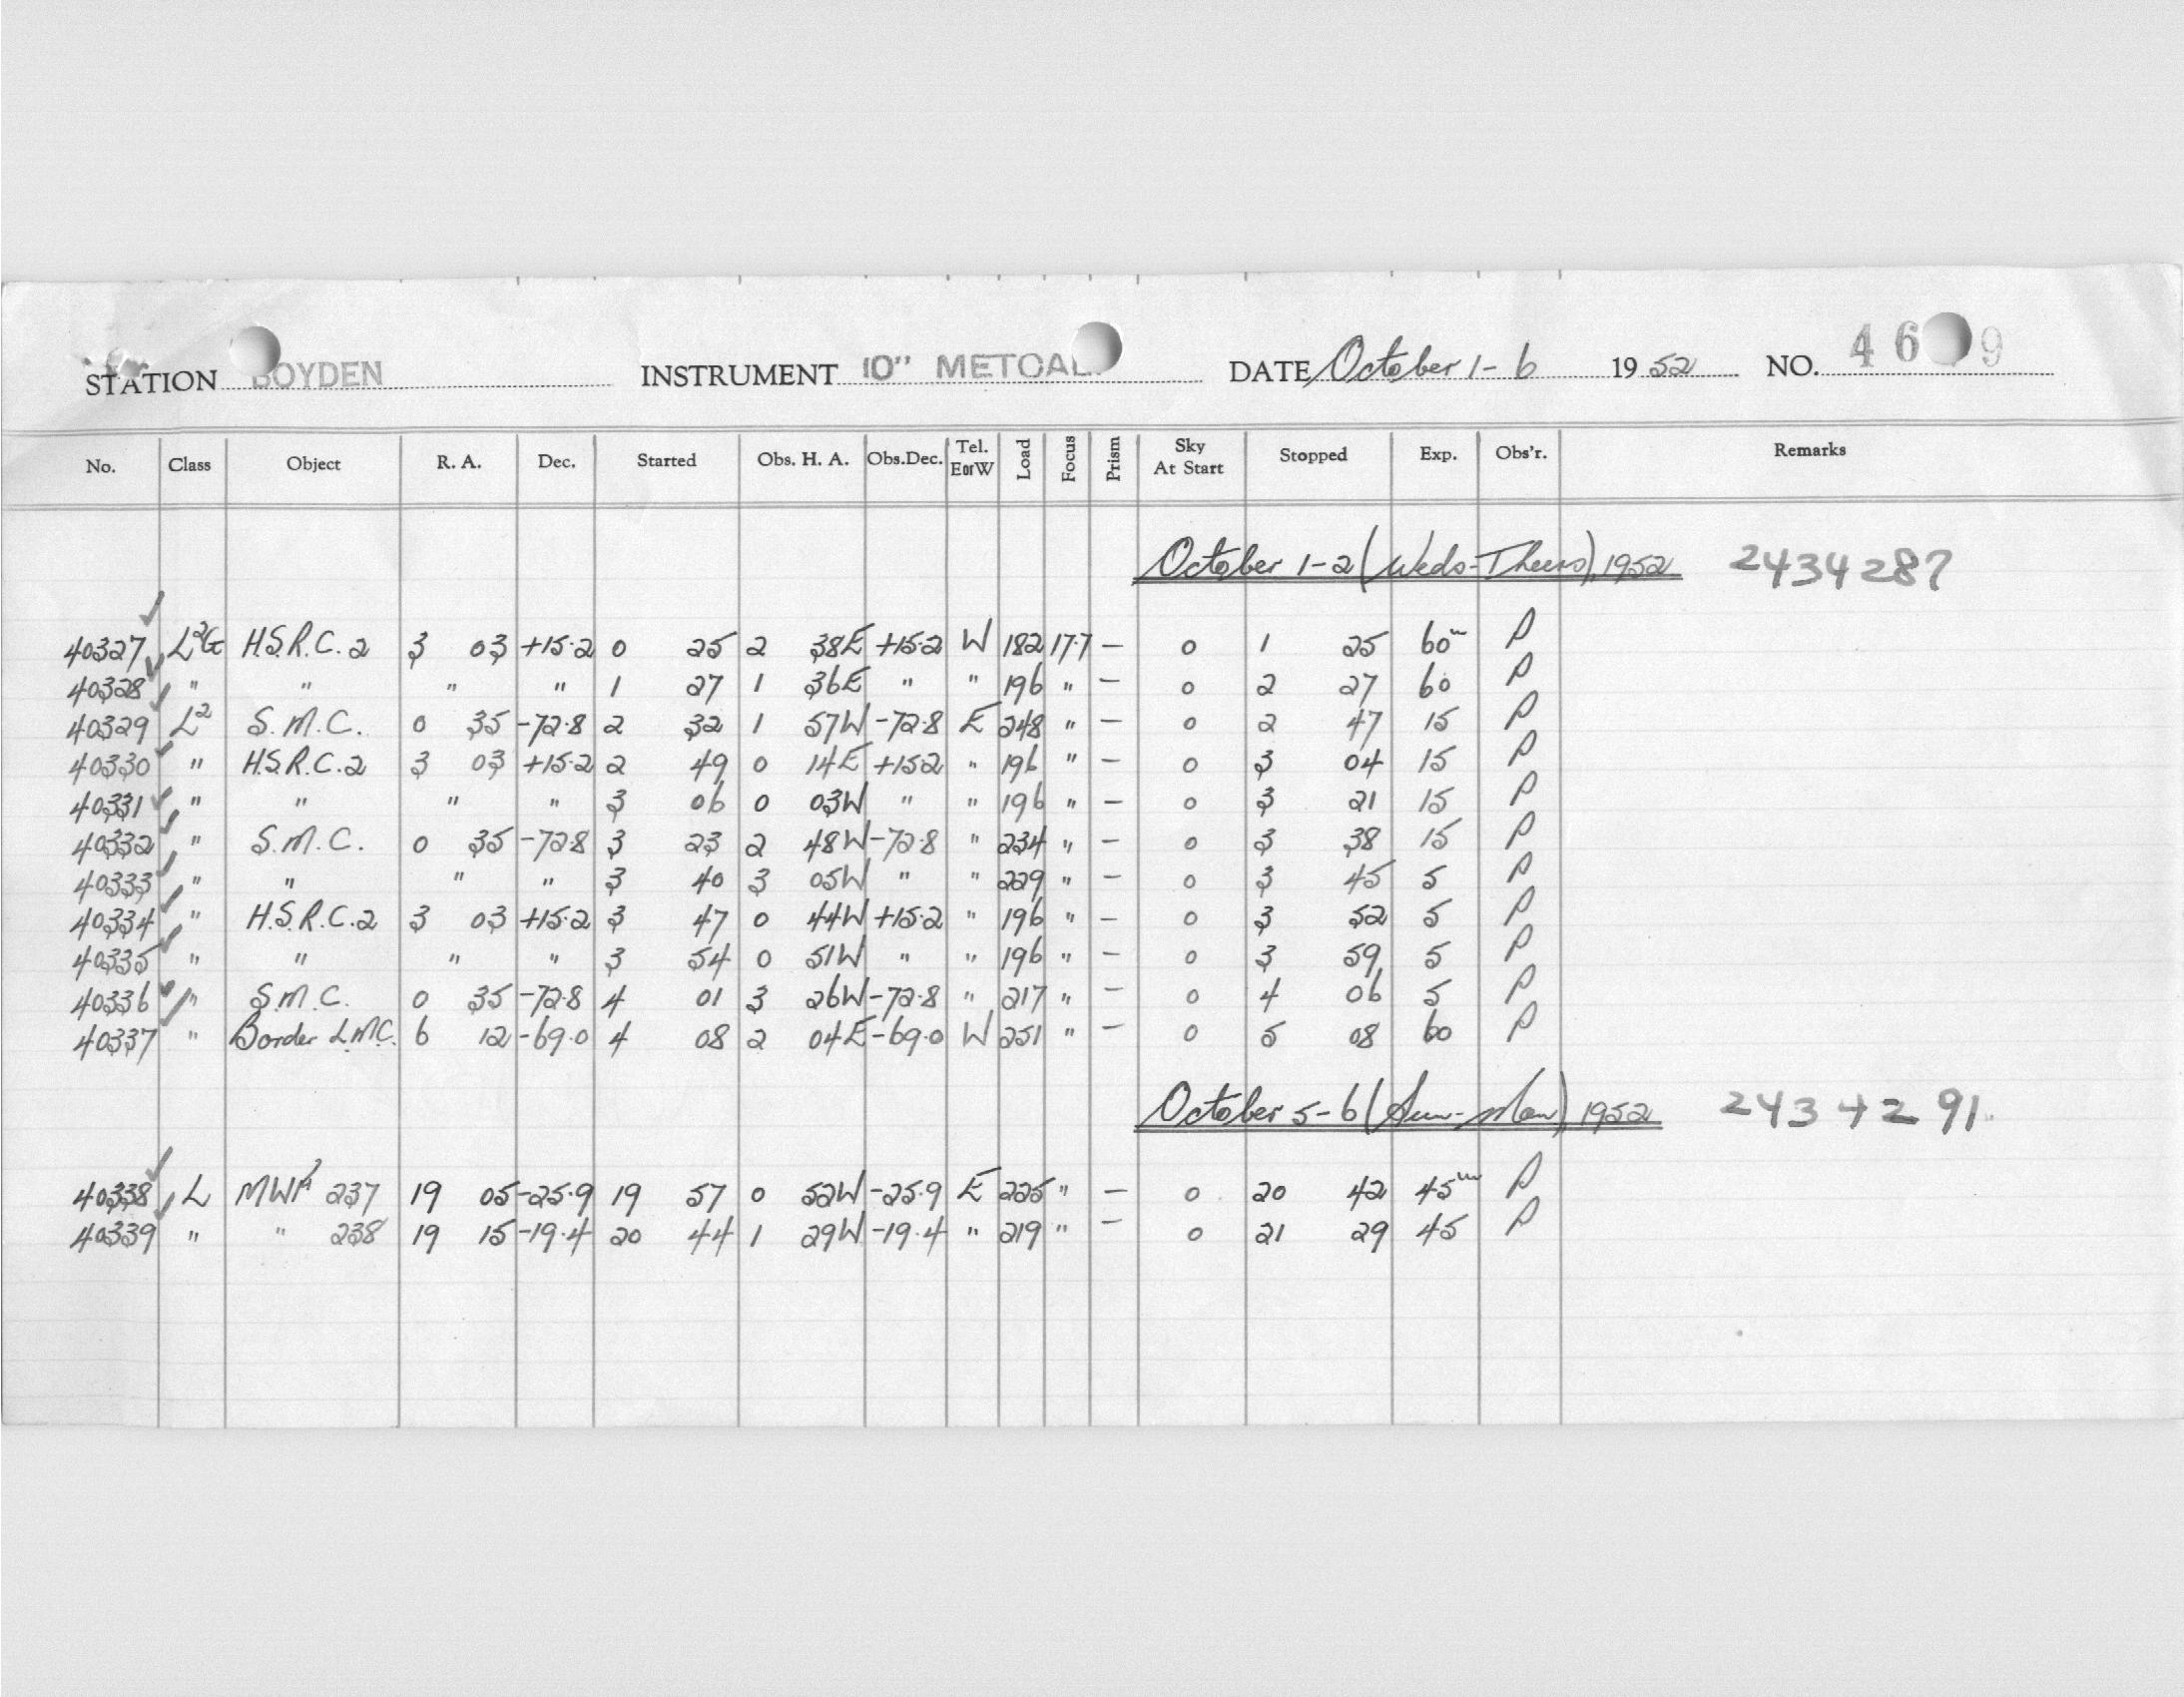 STATION BOYDEN INSTRUMENT 10" METCAL DATE October 1-6 1952 NO. 46 9
No. Class Object R. A. Dec. Started Obs. H. A. Obs.Dec. Tel. E or W Load Focus Prism Sky At Start Stopped Exp. Obs'r. Remarks
October 1-2 (Weds-Thurs), 1952 2434287
40327 L²G H.S.R.C. 2 3 03 +15.2 0 25 2 38E +15.2 W 182 17.7 — 0 1 25 60ᵐ P
40328 " " " " 1 27 1 36E " " 196 " — 0 2 27 60 P
40329 L² S.M.C. 0 35 -72.8 2 32 1 57W -72.8 E 248 " — 0 2 47 15 P
40330 " H.S.R.C. 2 3 03 +15.2 2 49 0 14E +15.2 " 196 " — 0 3 04 15 P
40331 " " " " 3 06 0 03W " " 196 " — 0 3 21 15 P
40332 " S.M.C. 0 35 -72.8 3 23 2 48W -72.8 " 234 " — 0 3 38 15 P
40333 " " " " 3 40 3 05W " " 229 " — 0 3 45 5 P
40334 " H.S.R.C. 2 3 03 +15.2 3 47 0 44W +15.2 " 196 " — 0 3 52 5 P
40335 " " " " 3 54 0 51W " " 196 " — 0 3 59 5 P
40336 " S.M.C. 0 35 -72.8 4 01 3 26W -72.8 " 217 " — 0 4 06 5 P
40337 " Border L.M.C. 6 12 -69.0 4 08 2 04E -69.0 W 251 " — 0 5 08 60 P
October 5-6 (Sun-Mon), 1952 2434291
40338 L MWF 237 19 05 -25.9 19 57 0 52W -25.9 E 225 " — 0 20 42 45ᵐ P
40339 " " 238 19 15 -19.4 20 44 1 29W -19.4 " 219 " — 0 21 29 45 P